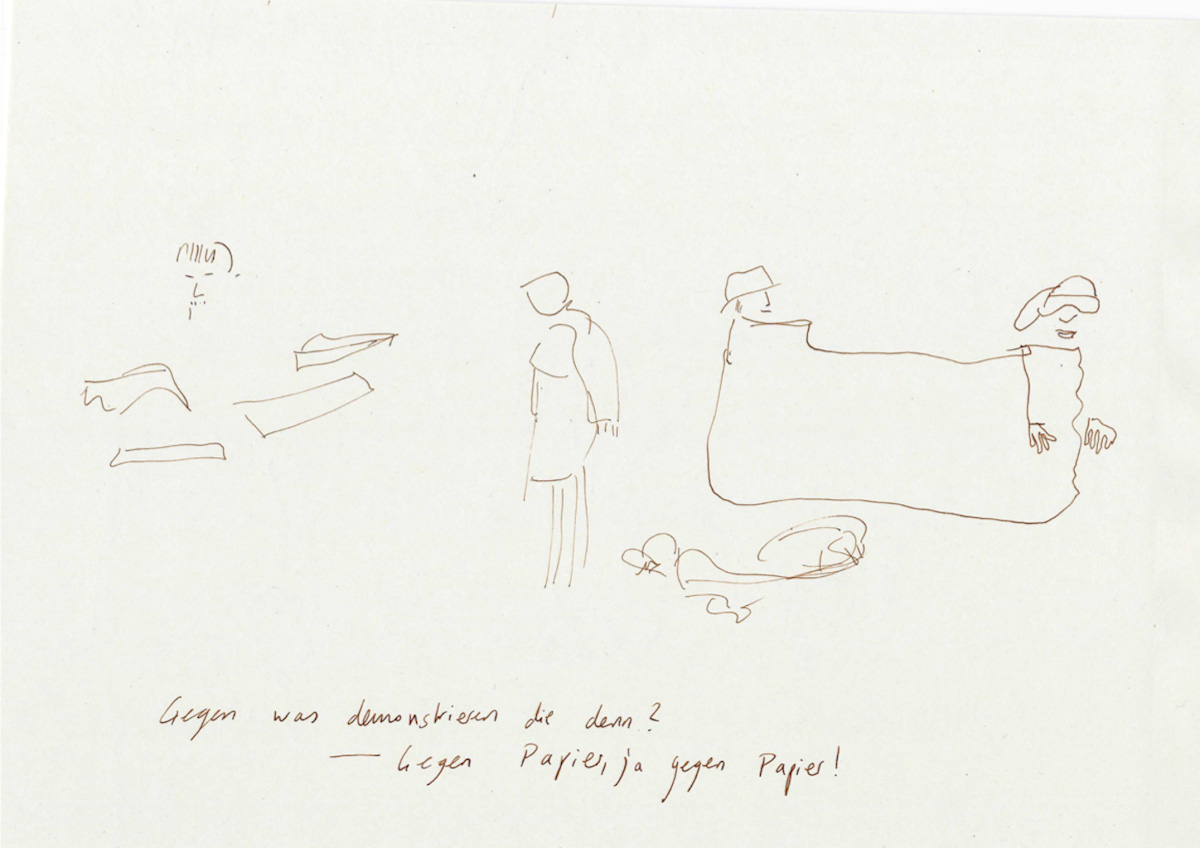 Gegen was demonstrieren die denn?
— Gegen Papier, ja gegen Papier!